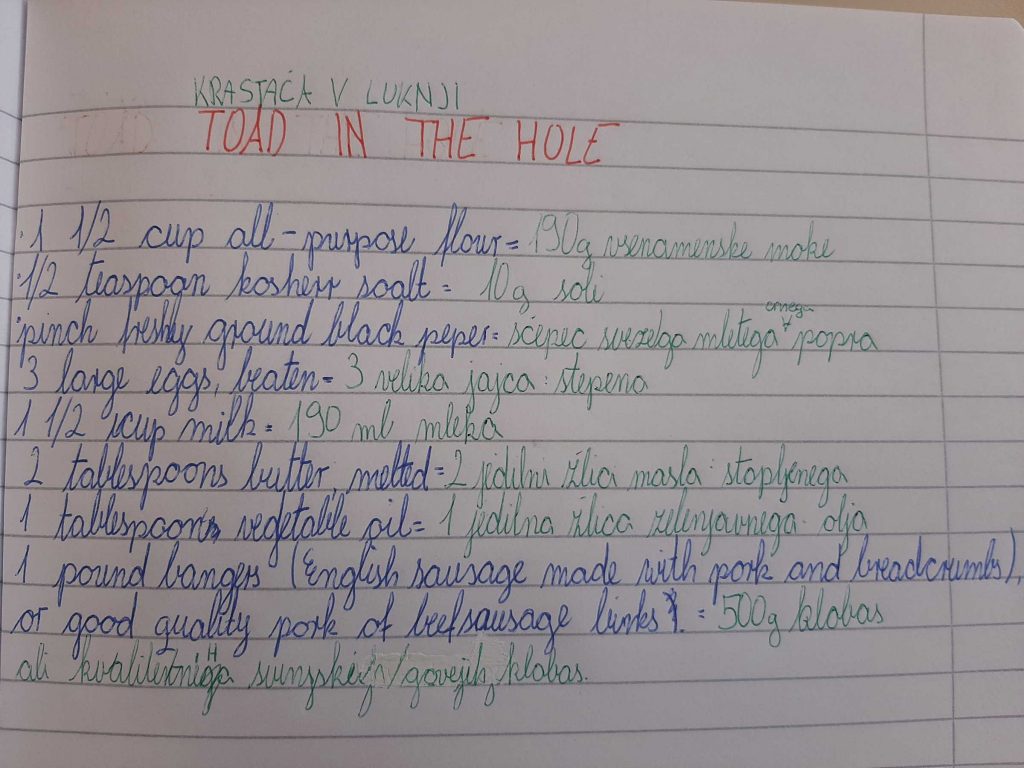 KRASTAČA V LUKNJI
TOAD IN THE HOLE
·1 1/2 cup all-purpose flour = 190g vsenamenske moke
·1/2 teaspoon kosherr soalt = 10g soli
·pinch freshly ground black peper = ščepec svežega mletega črnega popra
3 large eggs, beaten = 3 velika jajca: stepena
1 1/2 cup milk = 190 ml mleka
2 tablespoons butter, melted = 2 jedilni žlici masla: stopljenega
1 tablespoon vegetable oil = 1 jedilna žlica zelenjavnega olja
1 pound bangers (English sausage made with pork and breadcrumbs),
or good quality pork of beef sausage links. = 500g klobas
ali kvalitetnih svinjskih/govejih klobas.